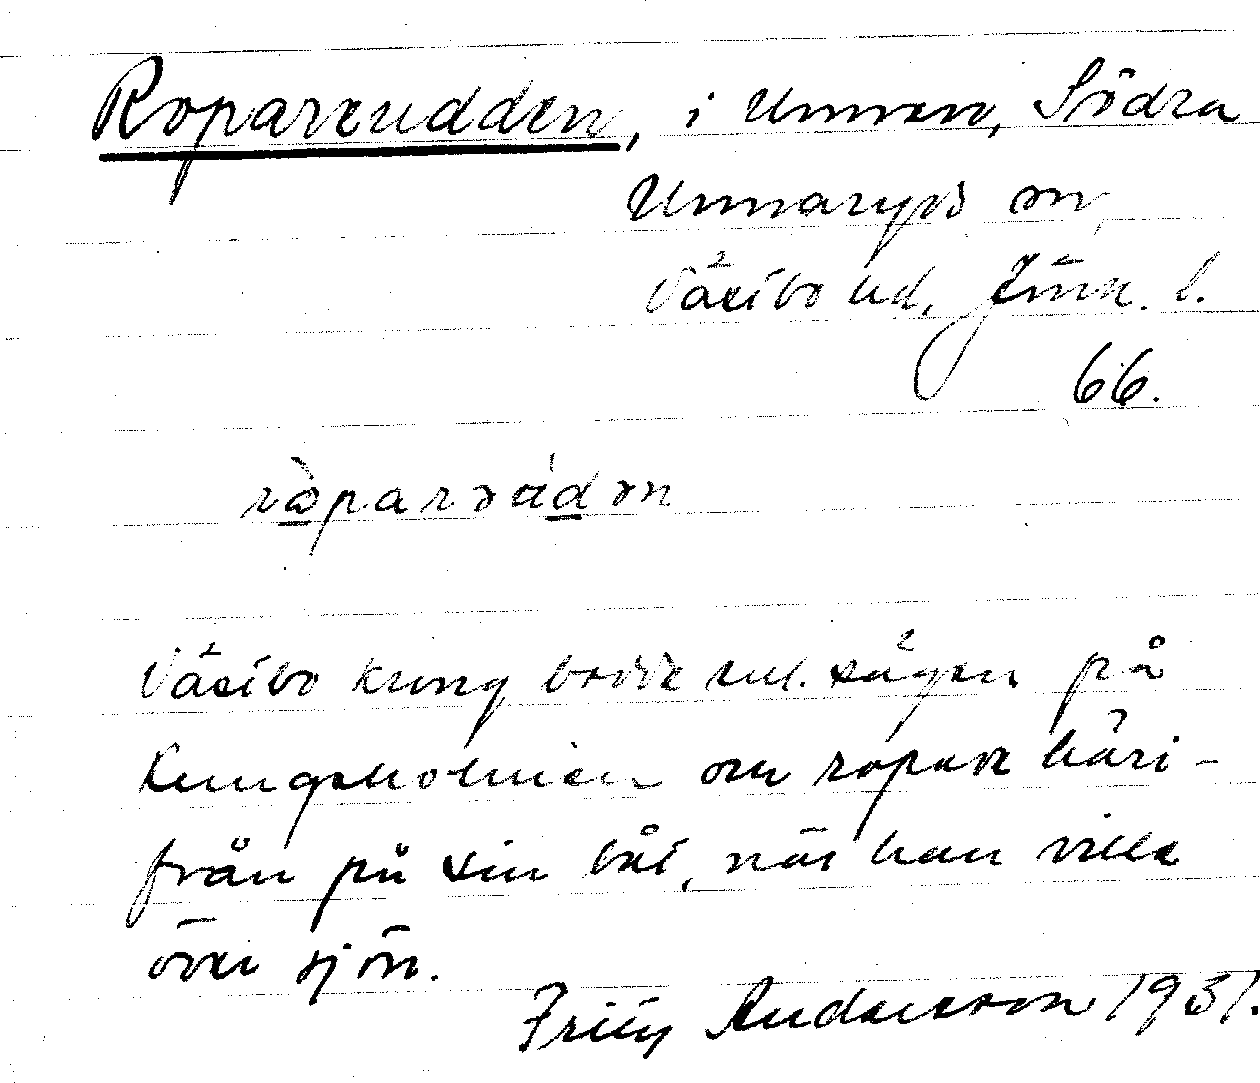 Ropareudden, i Unnen, Södra
Unnaryds sn,
Västbo hd, Jönk. l.
66.
ròparəùdən
Västbo kung bodde enl. sägen på
Kungsholmen och ropade häri-
från på sin båt, när han ville
över sjön.
Fritz Andersson 1931.